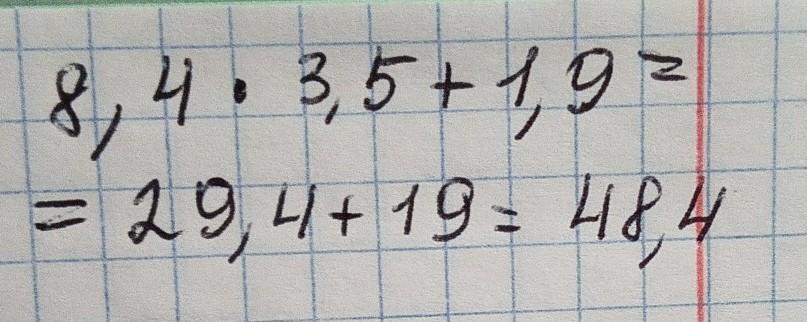 8,4 · 3,5 + 1,9 =
= 29,4 + 19 = 48,4